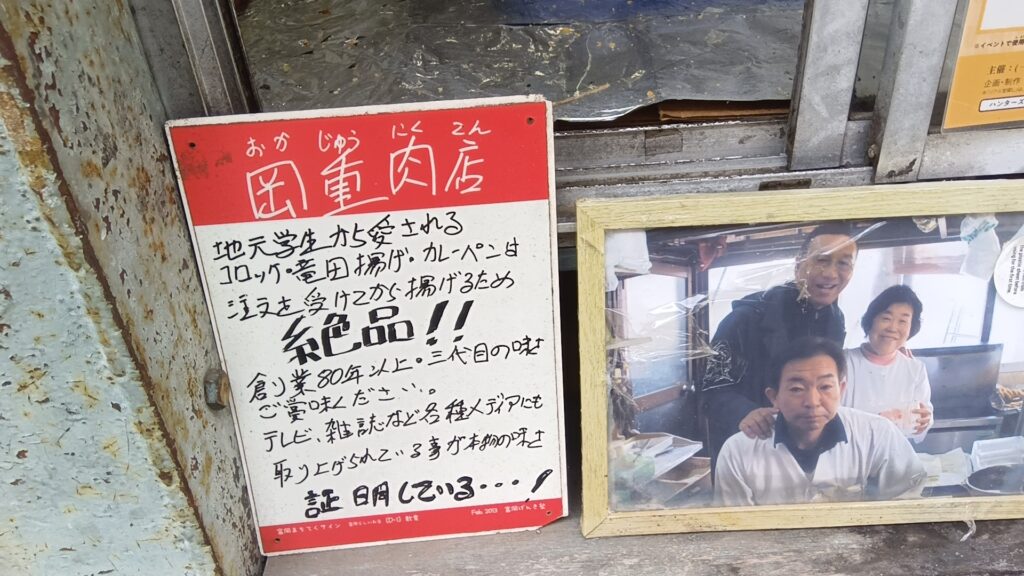 おか じゅう にく てん
岡重肉店
地元学生から愛される
コロッケ・竜田揚げ・カレーペンは
注文を受けてから揚げるため
絶品!!
創業80年以上・三代目の味を
ご賞味ください。
テレビ、雑誌など各種メディアにも
取り上げられている事が本物の味を
証明している・・・!
富岡まちてくサイン
Feb. 2013 富岡げんき塾
※イベントで使用
主催:(一
企画・制作
ハンターズ
for the first time